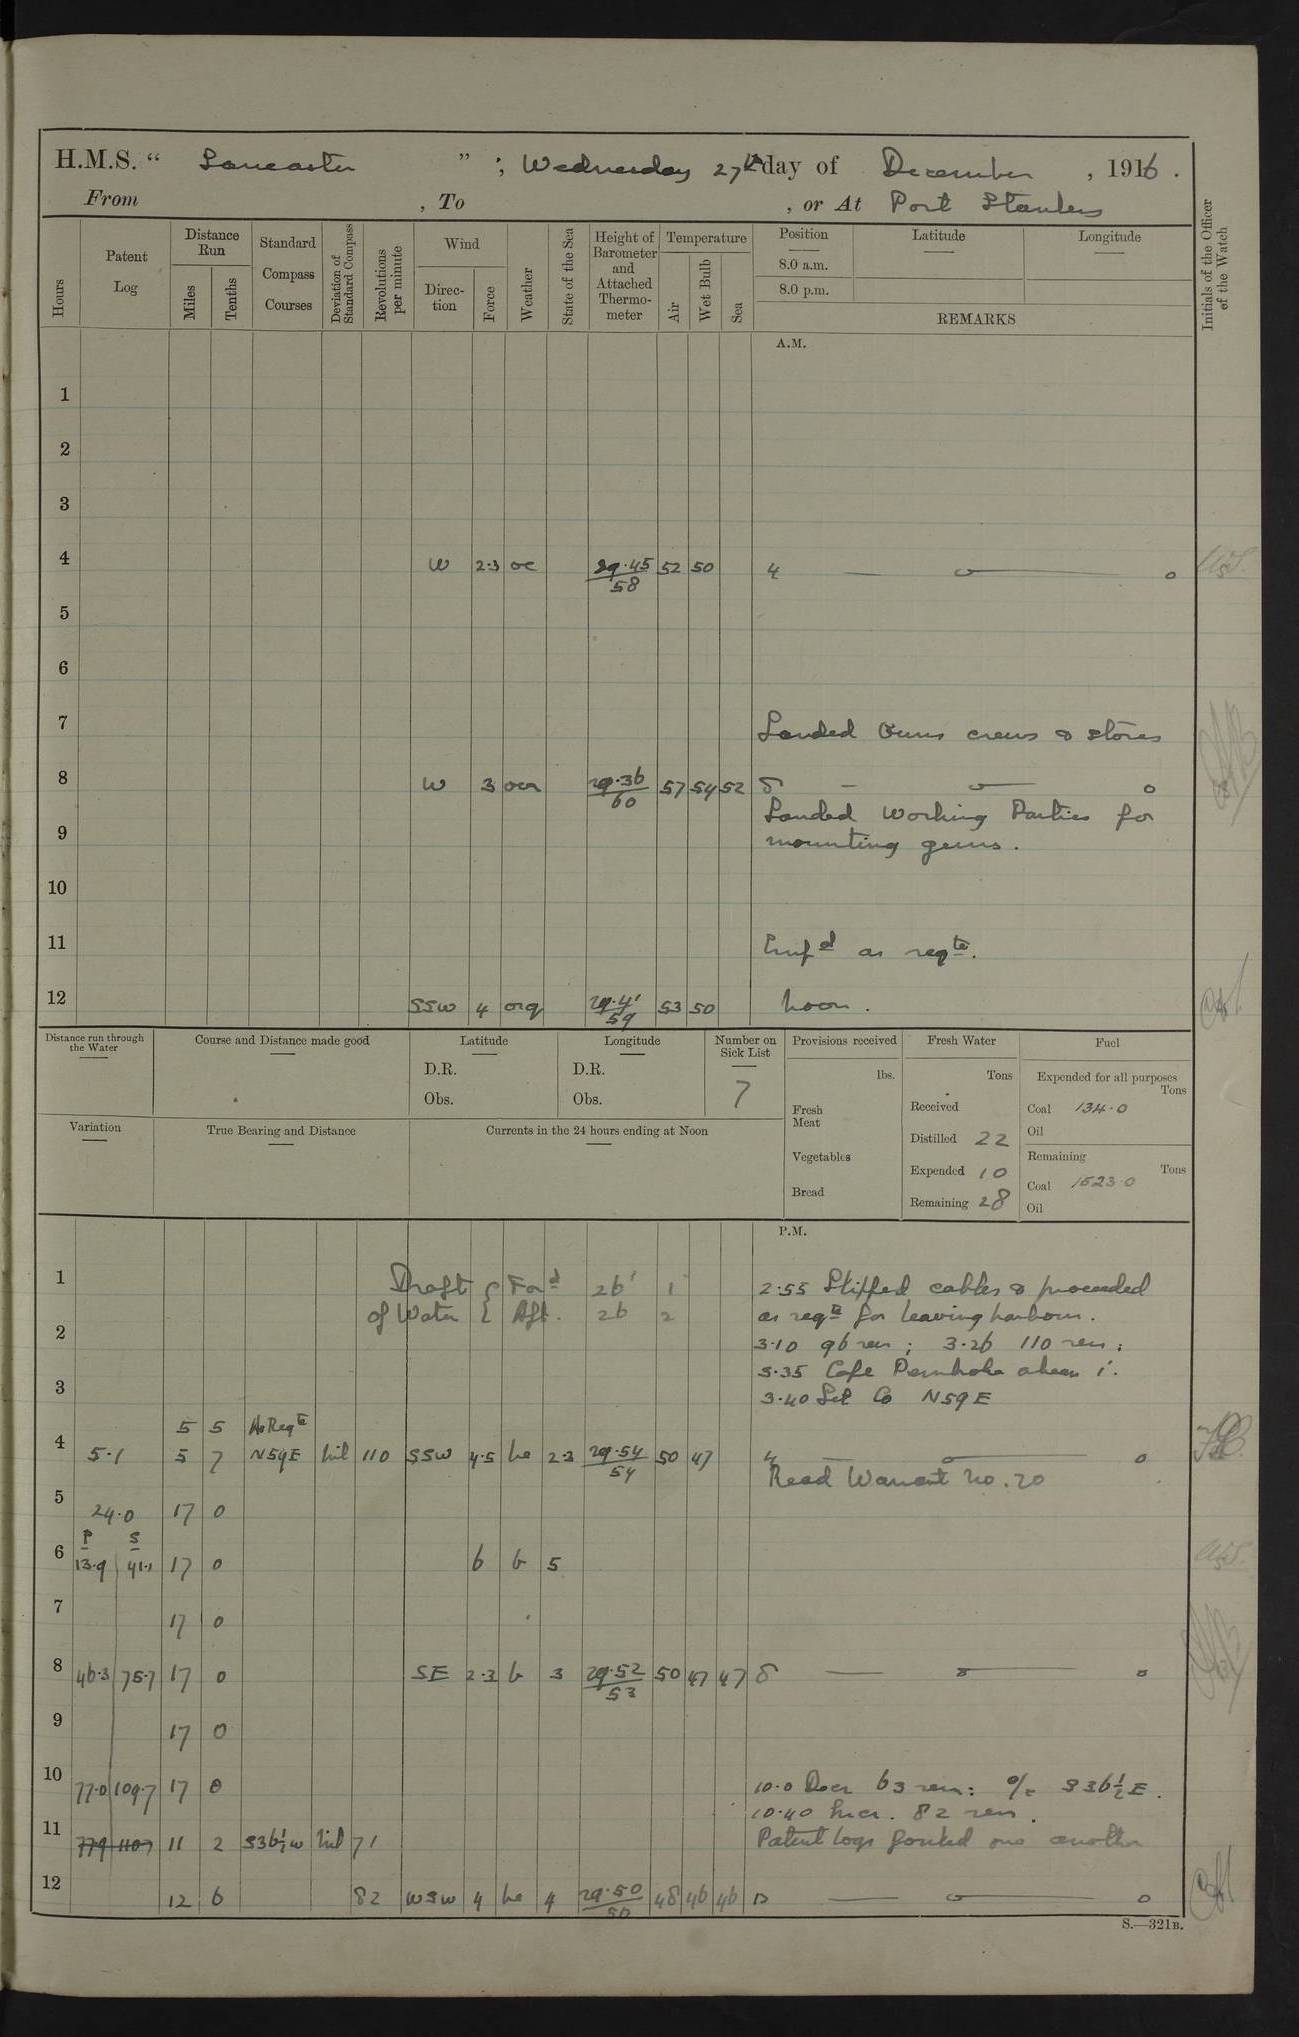 H.M.S. " Lancaster " ; Wednesday 27th day of December , 1916 .
From , To , or At Port Stanley
Hours
Patent Log
Distance Run
Miles
Tenths
Standard Compass Courses
Deviation of Standard Compass
Revolutions per minute
Wind
Direc-tion
Force
Weather
State of the Sea
Height of Barometer and Attached Thermo-meter
Temperature
Air
Wet Bulb
Sea
Position
8.0 a.m.
8.0 p.m.
Latitude
Longitude
REMARKS
Initials of the Officer of the Watch
A.M.
1
2
3
4 W 2.3 oc 29.45/58 52 50 4 o
5
6
7 Landed Guns crews & stores
8 W 3 ocr 29.36/60 57 54 52 8 o
Landed Working Parties for
9 mounting guns.
10
11 Empd as reqte.
12 SSW 4 orq 29.41/59 53 50 Noon.
Distance run through the Water
Course and Distance made good
Latitude
D.R.
Obs.
Longitude
D.R.
Obs.
Number on Sick List
7
Provisions received
lbs.
Fresh Meat
Vegetables
Bread
Fresh Water
Tons
Received
Distilled 22
Expended 10
Remaining 28
Fuel
Expended for all purposes
Tons
Coal 134.0
Oil
Remaining
Tons
Coal 1523.0
Oil
Variation
True Bearing and Distance
Currents in the 24 hours ending at Noon
P.M.
1 Draft { Ford 26' 1" 2.55 Slipped cables & proceeded
of Water { Aft. 26 2 as reqte for leaving harbour.
2 3.10 96 rev ; 3.26 110 rev ;
3.35 Cape Pembroke abeam 1'.
3 3.40 Set Co N59E
5 5 As Reqte
4 5.1 5 7 N59E Nil 110 SSW 4.5 bc 2.3 29.54/54 50 47 4 o
Read Warrant No. 20
5 24.0 17 0
P S
6 13.9 41.1 17 0 6 b 5
7 17 0
8 46.3 75.7 17 0 SE 2.3 b 3 29.52/53 50 47 47 8 o
9 17 0
10 77.0 109.7 17 0 10.0 Decr 63 rev: a/c S36½E.
10.40 Incr. 82 rev.
11 77.9 110.7 11 2 S36½W Nil 71 Patent logs fouled one another
12 12 6 82 WSW 4 bc 4 29.50/50 48 46 46 12 o
S.—321B.